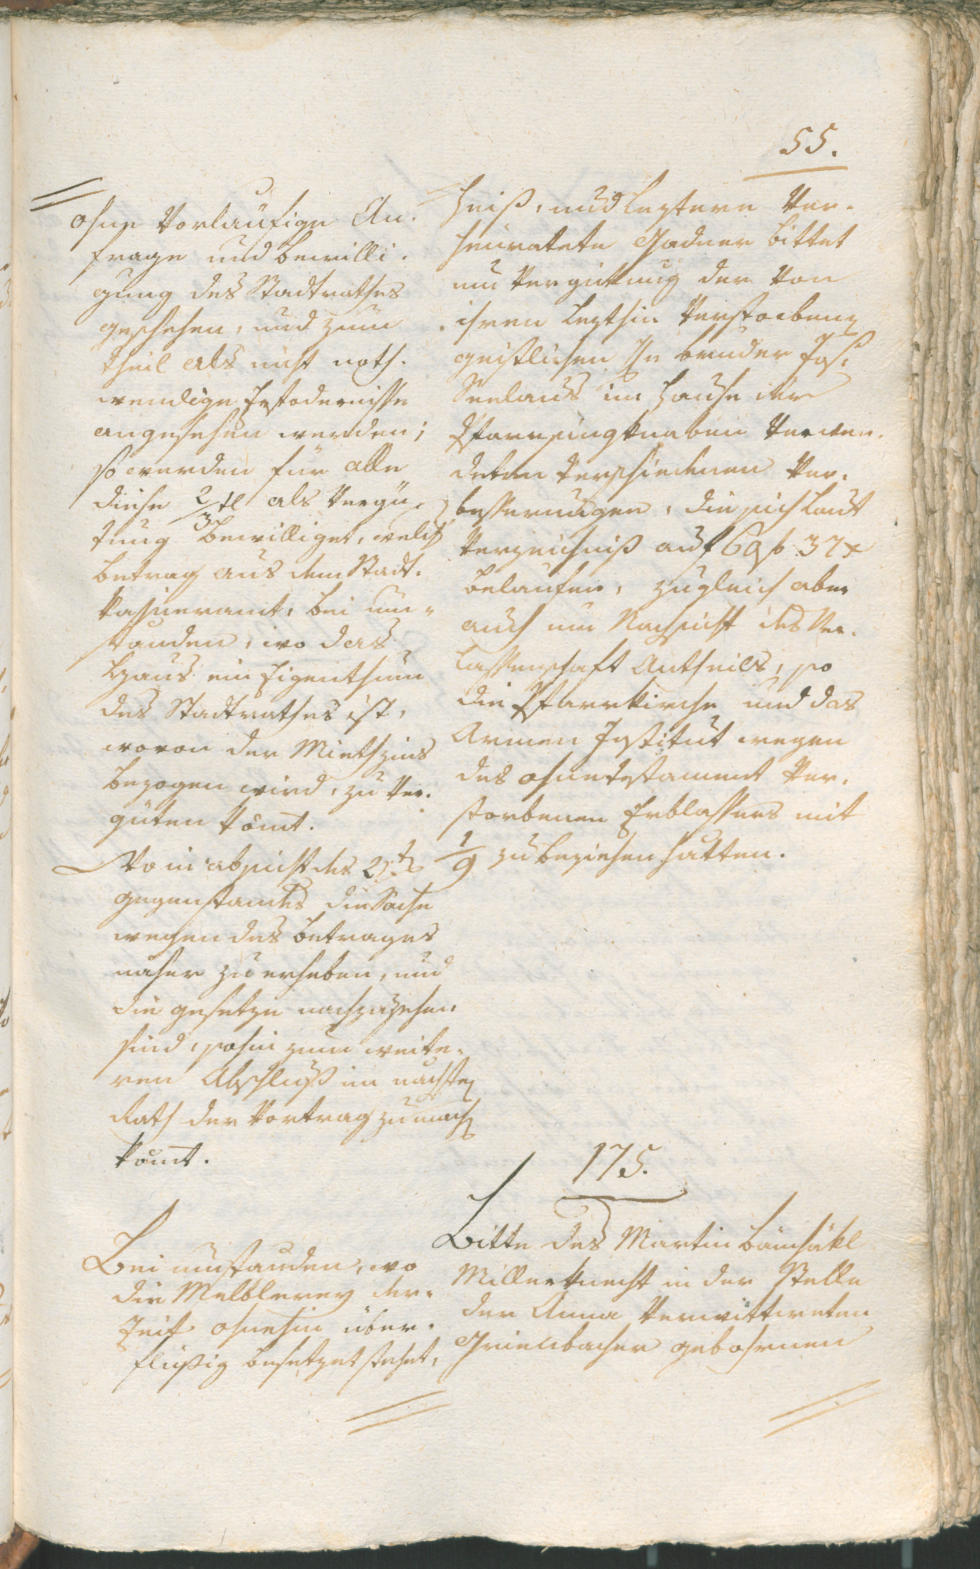 55.
ohne vorläufige An-
frage und Bewilli-
gung des Stadtrathes
geschehen, und zum
theil als nicht noth-
wendige Erfodernisse
angesehen werden;
so werden für alle
diese 2/3tl als Vergü-
tung bewilliget, welch
betrag aus dem Stadt-
kassieramt, bei um-
standen, wo das
Haus ein Eigenthum
des Stadtrathes ist,
wovon der Miethzins
bezogen wird, zu ver-
güten kömt.
Wo in absicht des 2ten
gegenstandes die Sache
wegen des betrages
näher zu erheben, und
die gesetze nachzusehen
sind, sohin zum weite-
ren Abschluß im nächsten
Rath der Vortrag zu machen
kömt.
Bei umstanden, wo
die Melblerey der-
zeit ohnehin über-
flüßig besetzet stehet,
heiß, und leztere ver-
heuratete Gadner bittet
um Vergütung der von
ihren lezthin verstorbenen
geistlichen Hn bruder Jos:
Seelaus im Hause der
Pfarrsingknaben verwen-
deten verschiedenen Ver-
besserungen, die sich laut
Verzeichniß auf 69 f 37 x
belaufen, zugleich aber
auch um Nachsicht des Ver-
lassenschaft Antheils, so
die Pfarrkirche und das
Armen Institut wegen
des ohne testament ver-
storbenen Erblassers mit
1/9 zu beziehen hätten.
175.
Bitte des Martin
Millerknecht in der Stelle
der Anna verwittweten
Grienbacher gebohrnen